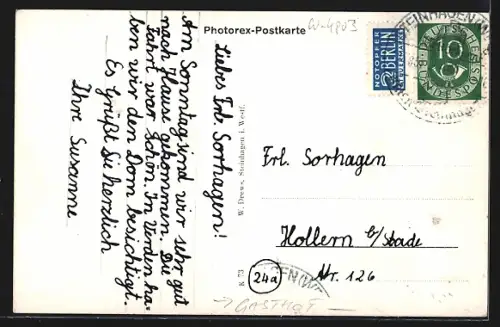 Photorex-Postkarte
W-4903
Liebes Frl. Sorhagen!
Am Sonntag sind wir sehr gut
nach Hause gekommen. Die
Fahrt war schön. In Verden ha-
ben wir den Dom besichtigt.
Es grüßt Sie herzlich
Ihre Susanne
K 73
W. Drews, Steinhagen i. Westf.
NOTOPFER
2 BERLIN
STEUERMARKE
10
DEUTSCHE
BUNDESPOST
STEINHAGEN
Frl. Sorhagen
Hollern b/Stade
Nr. 126
24a
GASTHOF